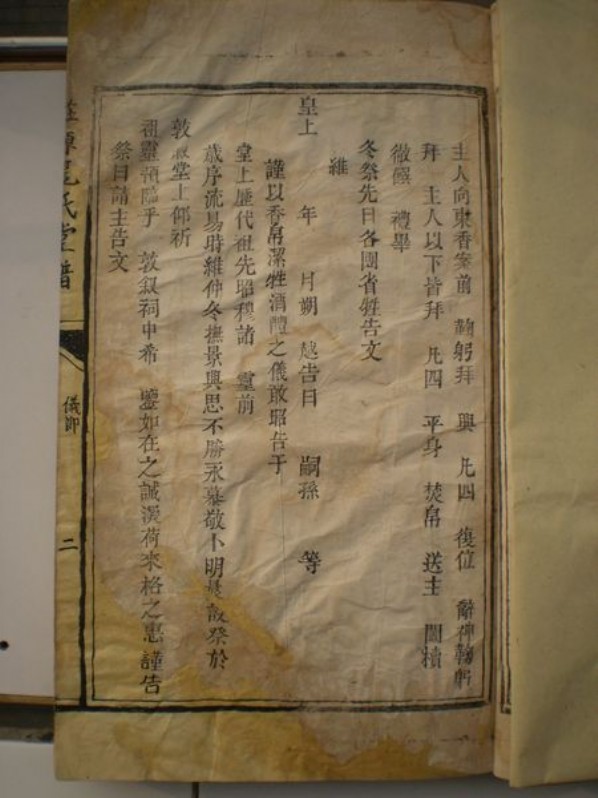 主人向東香案前 鞠躬拜 興 凡四 復位 辭神鞠躬
拜 主人以下皆拜 凡四 平身 焚帛 送主 闔櫝
徹饌 禮畢
冬祭先日各團省牲告文
維
皇上 年 月朔 越告日 嗣孫 等
謹以香帛潔牲酒醴之儀敢昭告于
堂上歷代祖先昭穆諸 靈前
歲序流易時維仲冬撫景興思不勝永慕敬卜明晨敬祭於
敦叙堂上仰祈
祖靈預臨乎 敦叙祠中希 鑒如在之誠深荷來格之惠謹告
祭日請主告文
氏堂譜
儀節
二